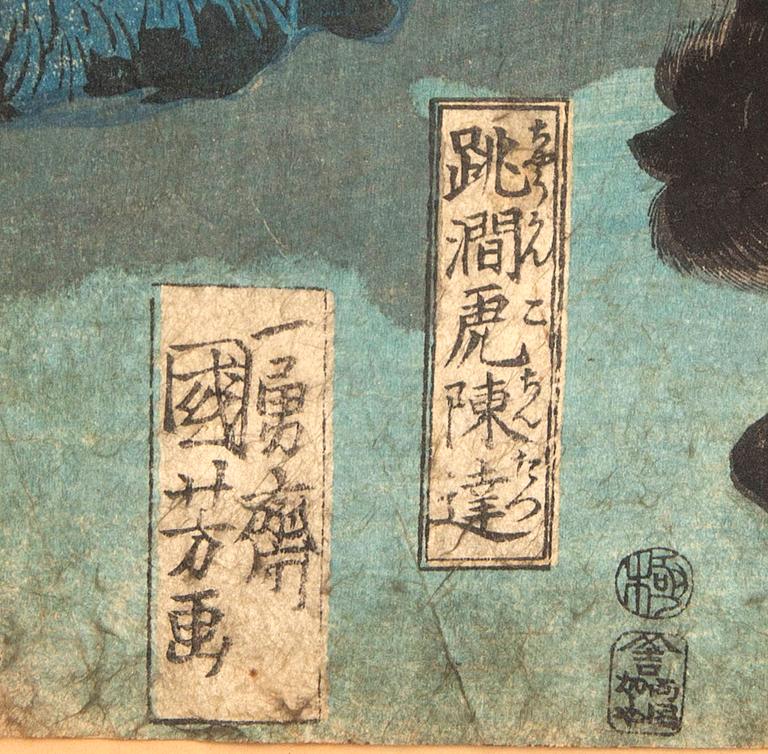 跳澗虎陳達
ちやうかんこちんたつ
一勇齋
國芳画
極